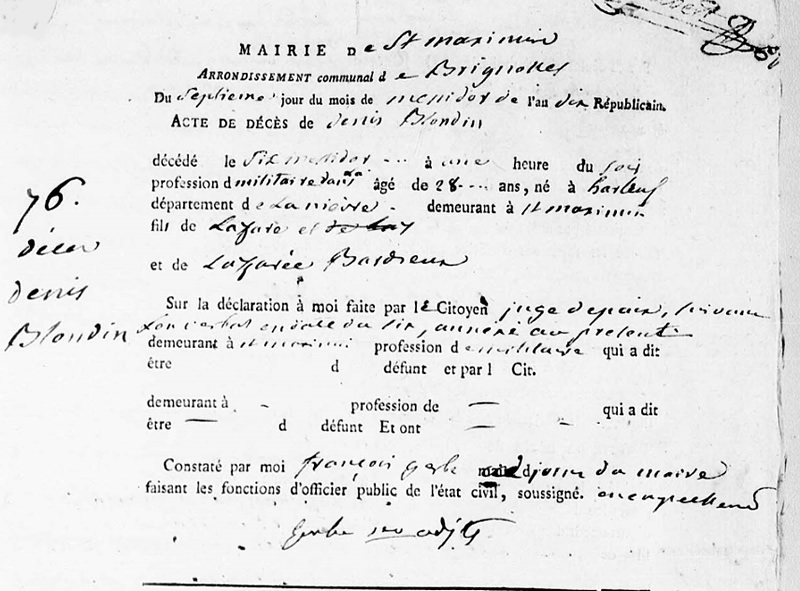 MAIRIE De St maximin
ARRONDISSEMENT communal d e Brignolles
Du Septieme jour du mois de messidor de l'an dix Républicain.
ACTE DE DÉCÈS de denis Blondin
décédé le Six messidor à une heure du soir
profession d militaire dans âgé de 28 ans, né à
département d e La nievre demeurant à St maximin
fils de Lazare et
et de Lazarée
76.
déces
denis
Blondin
Sur la déclaration à moi faite par le Citoyen juge de paix, suivant
Son verbal en date du six, annexé au présent
demeurant à St maximin profession d e militaire qui a dit
être d défunt et par l Cit.
demeurant à - profession de — qui a dit
être — d défunt Et ont — -
Constaté par moi françois gerbe adjoint du maire
faisant les fonctions d'officier public de l'état civil, soussigné.
gerbe adjt